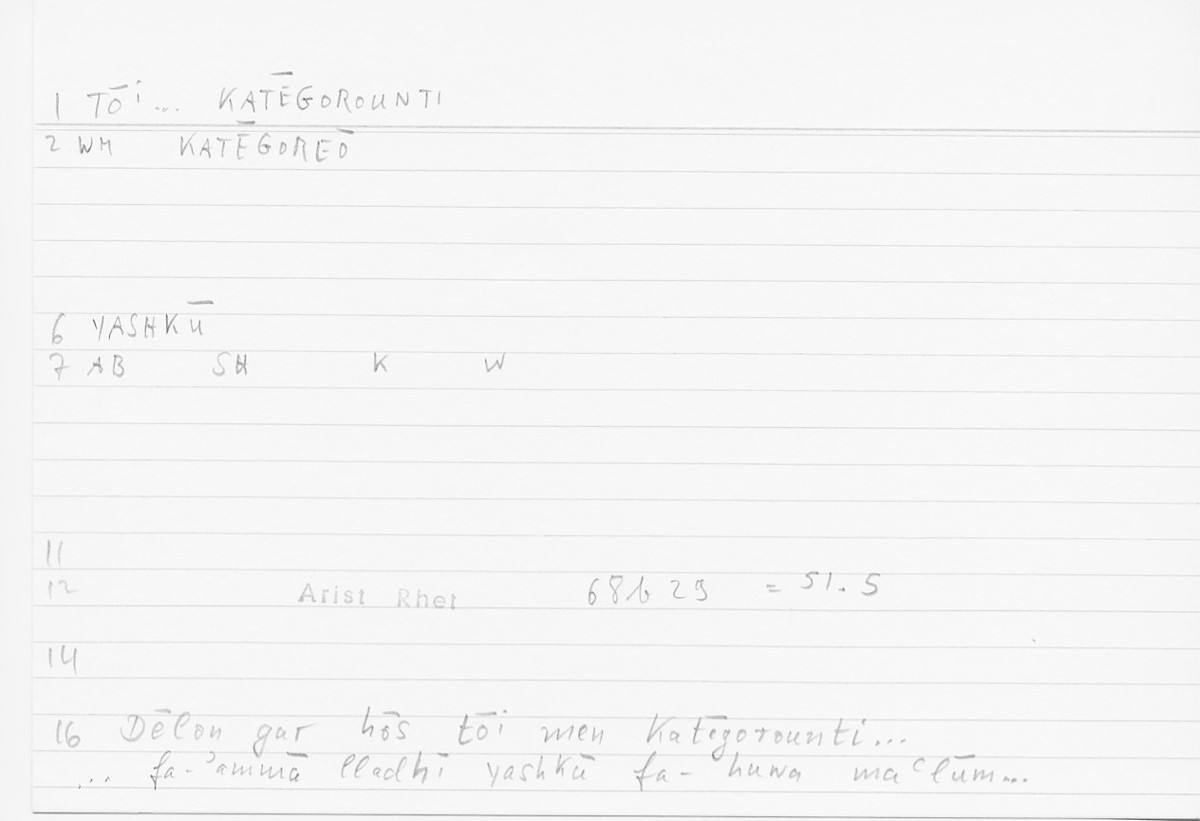 1 TŌi... KATĒGOROUNTI
2 WM KATĒGOREŌ
6 YASHKŪ
7 AB SH K W
11
12 Arist Rhet 68b29 = 51.5
14
16 Dēlon gar hōs tōi men Katēgorounti...
.. fa-ʾammā lladhī yashkū fa-huwa maʿlūm...